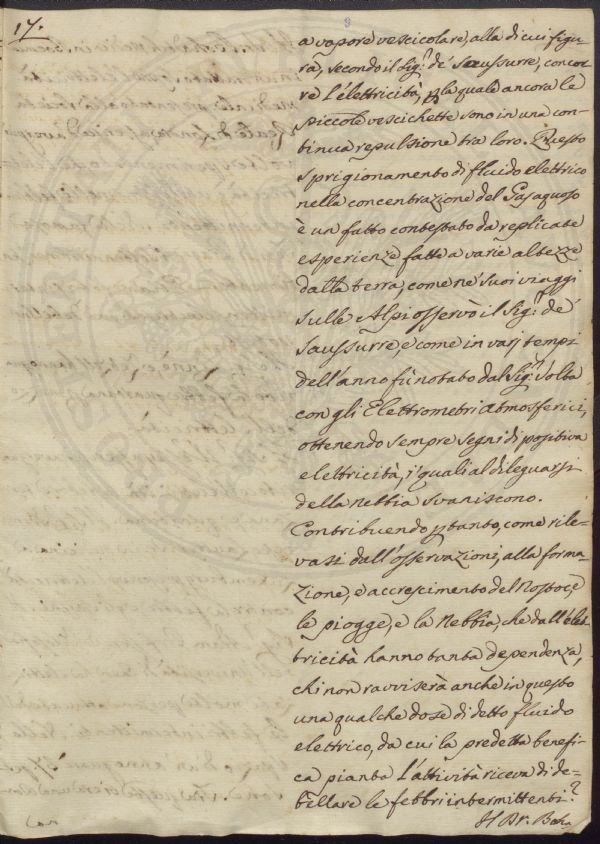 17.
9
a vapore vescicolare, alla di cui figu-
ra, secondo il Sig.r de Saussure, concor
re l'elettricità, p la quale ancora le
piccole vescichette sono in una con-
tinua repulsione tra loro. Questo
sprigionamento di fluido elettrico
nella concentrazione del Gasaquoso
è un fatto contestato da replicate
esperienze fatte a varie altezze
dalla terra, come nè suoi viaggi
sulle Alpi osservò il Sig.r de
Saussurre, e come in varj tempi
dell'anno fù notato dal Sig.r Volta
con gli Elettrometri atmosferici,
ottenendo sempre segni di positiva
elettricità, i quali al dileguarsi
della nebbia svaniscono.
Contribuendo ptanto, come rile-
vasi dall'osservazioni, alla forma-
zione, e accrescimento del Nostoce
le piogge, e la Nebbia, che dall'elet
tricità hanno tanta dependenza,
chi non ravviserà anche in questo
una qualche dose di detto fluido
elettrico, da cui la predetta benefi-
ca pianta l'attività riceva di de-
bellare le febbri intermittenti?
Il Dr.